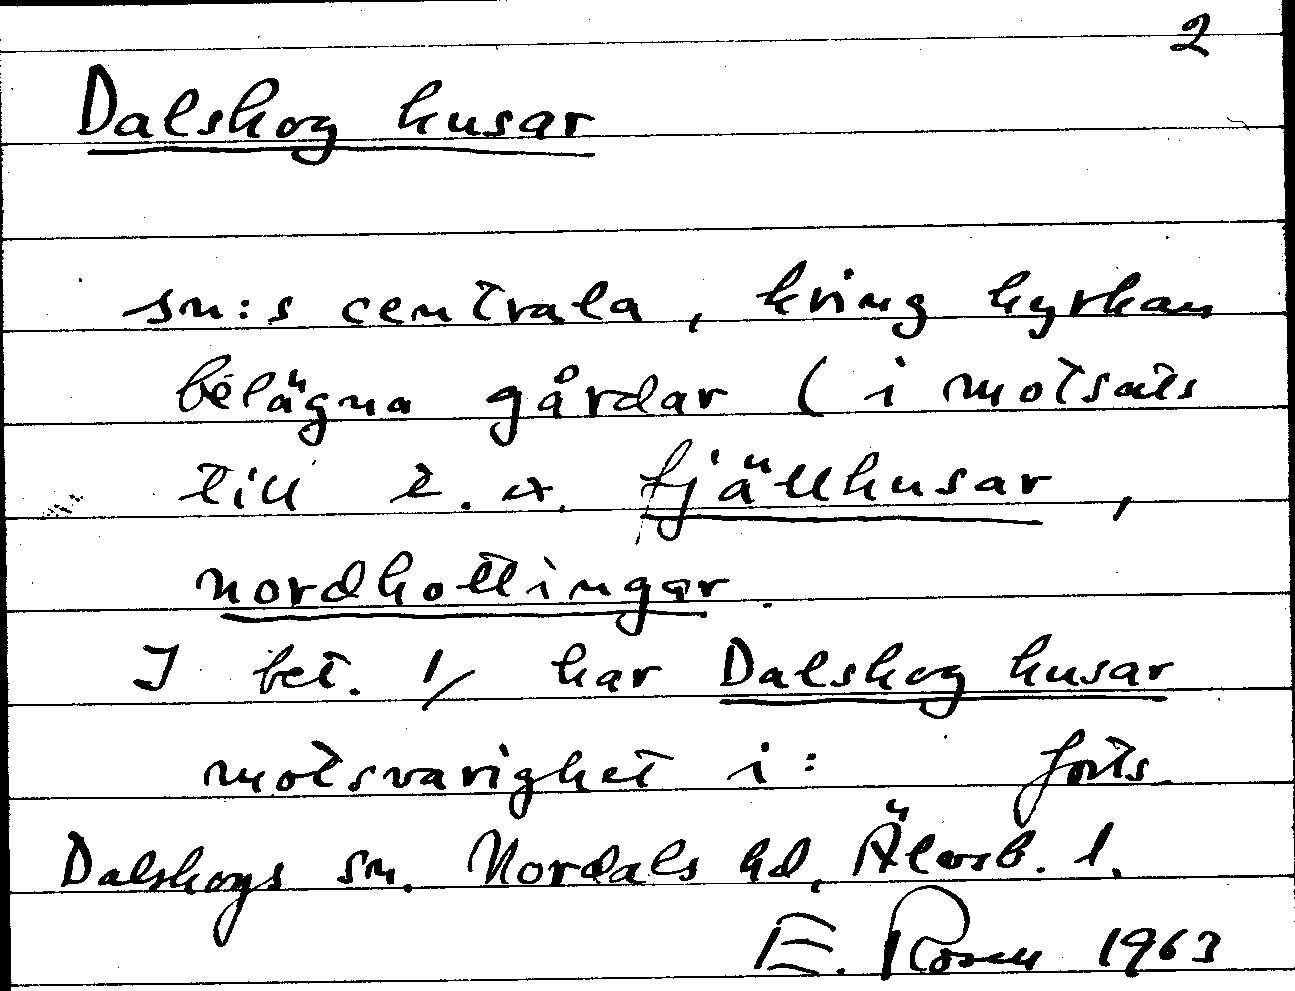 2
Dalskog husar
sn:s centrala, kring kyrkan
belägna gårdar (i motsats
till t. ex. fjällhusar,
nordhottingar.
I bet. 1/ har Dalskog husar
motsvarighet i: forts
Dalskogs sn. Nordals hd, Älvsb. l.
E. Rosen 1963